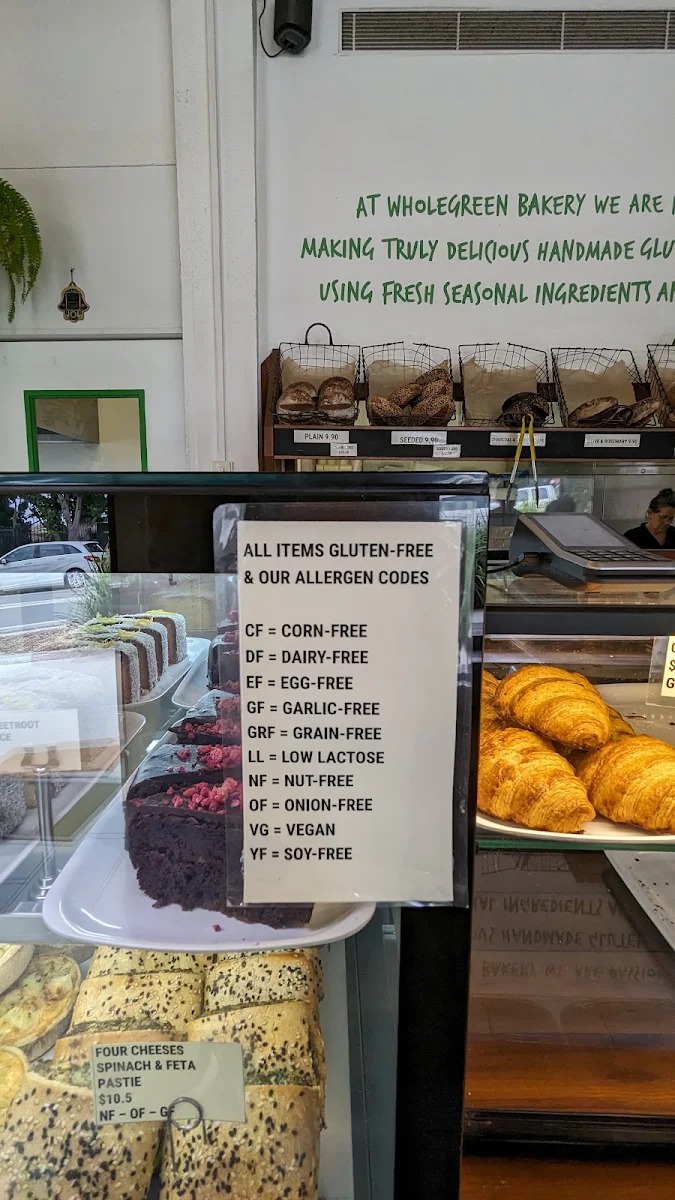 AT WHOLEGREEN BAKERY WE ARE
MAKING TRULY DELICIOUS HANDMADE GLU
USING FRESH SEASONAL INGREDIENTS A
PLAIN 9.90
SEEDED 9.90
& ROSEMARY 9.90
ALL ITEMS GLUTEN-FREE
& OUR ALLERGEN CODES
CF = CORN-FREE
DF = DAIRY-FREE
EF = EGG-FREE
GF = GARLIC-FREE
GRF = GRAIN-FREE
LL = LOW LACTOSE
NF = NUT-FREE
OF = ONION-FREE
VG = VEGAN
YF = SOY-FREE
EETROOT
CE
FOUR CHEESES
SPINACH & FETA
PASTIE
$10.5
NF – OF – GF